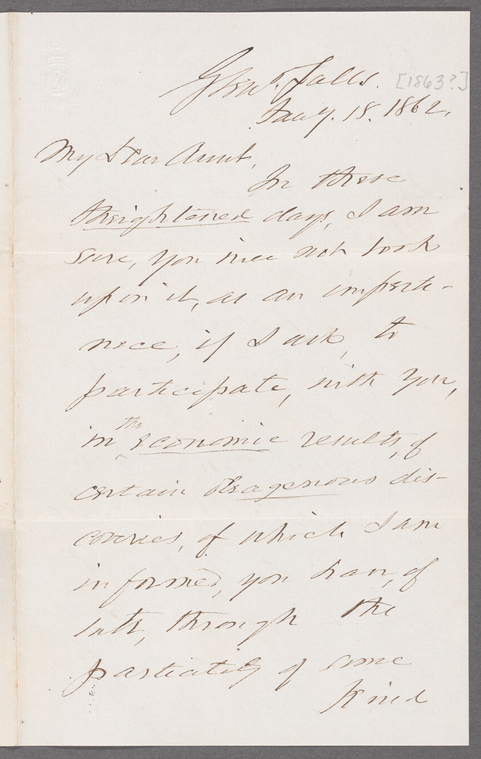 Glen's Falls. [1863?]
Jany. 18. 1862.
My Dear Aunt,
In these
straightened days, I am
sure, you will not look
upon it, as an imperti-
nece, if I ask, to
participate, with you,
in the economic results, of
certain dis-
coveries, of which I am
informed, you have, of
late, through the
partiality of some
kind